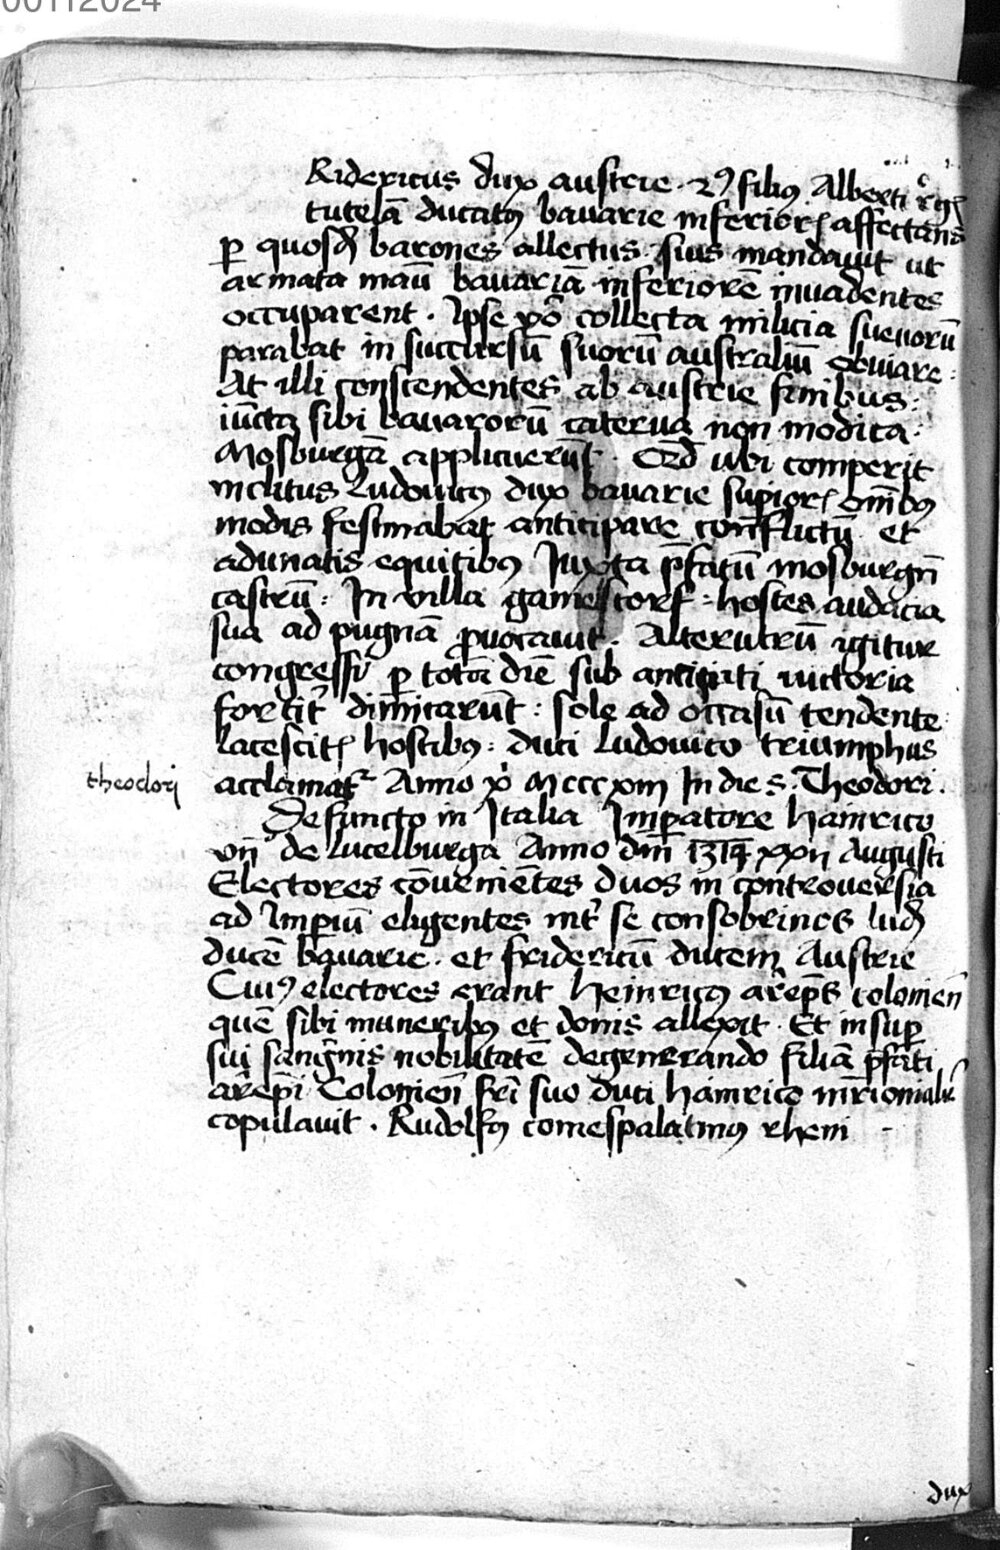 00112024
Ridericus dux austrie. 2⁹ filius Alberti rͨgꝭ
tutelā ducatꝰ bavarie inferiorꝭ affectans
ꝑ quosdā barones allectus suis mandavit ut
armata manū bavariā inferiorē invadentes
occuparent. Ipse v̊o collecta milicia suevorū
parabat in succursū suorū australiū obviare:
At illi conscendentes ab austrie finibus:
iūcta sibi bavarorū caterva non modica:
Mosburgā applicuerūt. Qd̄ ubi comperit
inclitus Ludovicꝰ dux bavarie supiorꝭ om̄ibꝰ
modis festinabat anticipare conflictū et
adunatis equitibꝰ Juxta p̄fatū mosburgn̄
castrū: In villa gamelstorf: hostes audacia
sua ad pugnā ꝓvocavit. Alterutrū igitur
congressi ꝑ totā diē sub ancipiti victoria
fortit᷑ dimicarūt: sole ad occasū tendente
lacescitꝭ hostibꝰ: duci Ludovico triumphus
theodori
acclamat᷑ Anno xͥ Mcccxiii In die s. Theodori.
Defuncto in Italia Impatore hainrico
vii de Lucelburga Anno dm̄ 1314 xxii Augusti
Electores cōvenientes duos in controversia
ad Imꝑiū eligentes int᷑ se consobrinos lud̄
ducē bavarie. et fridericū ducem Austrie
Cuiꝰ electores erant heinricꝰ arep̄s colonien̄
quē sibi muneribꝰ et donis allexit. Et insuꝑ
sui sangnīs nobilitatē degenerando filiā p̄fati
arep̄i Colonien̄ fr̄i suo duci hainrico mr̄ionialit᷑
copulavit. Rudolfꝰ comes palatinꝰ rheni
dux